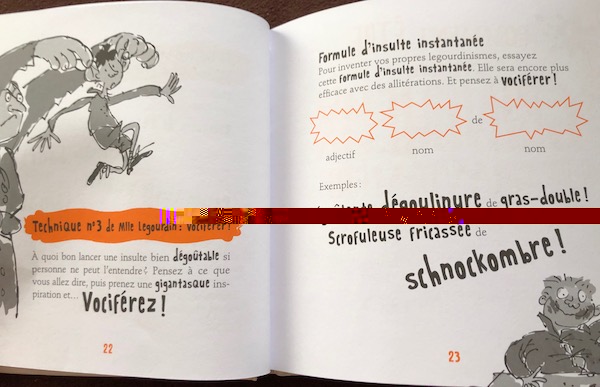 Technique n°3 de Mlle Legourdin : vociférer !
À quoi bon lancer une insulte bien dégoûtable si
personne ne peut l'entendre ? Pensez à ce que
vous allez dire, puis prenez une gigantasque ins-
piration et... Vociférez !
22
Formule d'insulte instantanée
Pour inventer vos propres legourdinismes, essayez
cette formule d'insulte instantanée. Elle sera encore plus
efficace avec des allitérations. Et pensez à vociférer !
de
adjectif nom nom
Exemples :
dégoulinure de gras-double !
Scrofuleuse fricassée de
schnockombre !
23